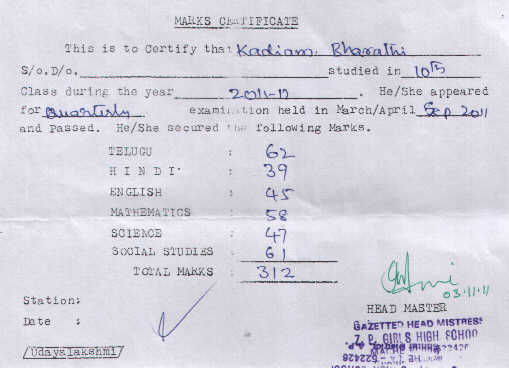 MARKS CERTIFICATE
This is to Certify that Kadiam. Bharathi
S/o.D/o. studied in 10th
Class during the year 2011-12 . He/She appeared
for Quarterly examination held in March/April Sep 2011
and Passed. He/She secured the following Marks.
TELUGU : 62
HINDI : 39
ENGLISH : 45
MATHEMATICS : 58
SCIENCE : 47
SOCIAL STUDIES : 61
TOTAL MARKS : 312
03.11.11
Station:
HEAD MASTER
Date :
GAZETTED HEAD MISTRESS
Z. P. GIRLS HIGH SCHOOL
/Udayalakshmi/